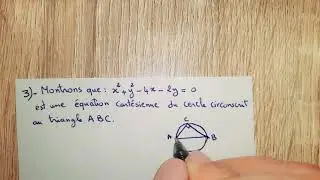 3)- Montrons que : x² + y² - 4x - 2y = 0
est une équation cartésienne du cercle circonscrit
au triangle ABC.
C
A B